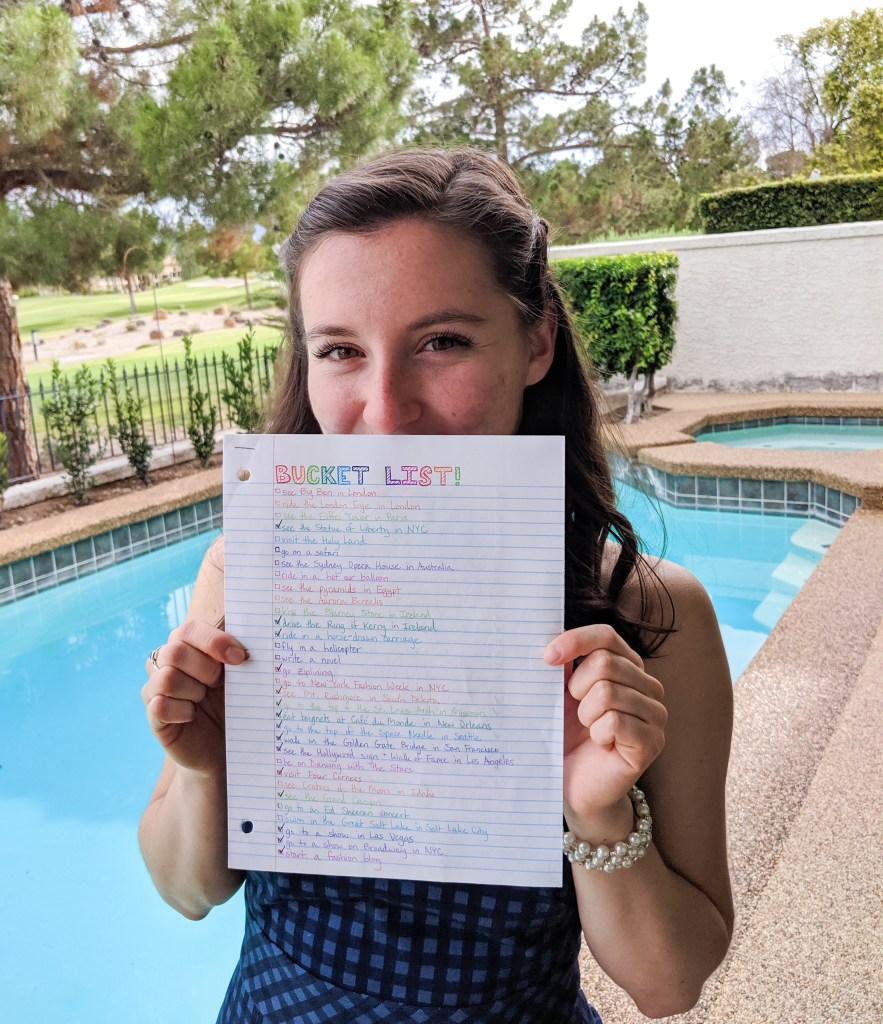 BUCKET LIST!
see Big Ben in London
ride the London Eye in London
see the Eiffel Tower in Paris
see the Statue of Liberty in NYC
visit the Holy Land
go on a safari
see the Sydney Opera House in Australia
ride in a hot air balloon
see the pyramids in Egypt
see the Aurora Borealis
kiss the Blarney Stone in Ireland
drive the Ring of Kerry in Ireland
ride in a horse-drawn carriage
fly in a helicopter
write a novel
go ziplining
go to New York Fashion Week in NYC
see Mt. Rushmore in South Dakota
go to the top of the St. Louis Arch in
eat beignets at Café du Monde in New Orleans
go to the top of the Space Needle in Seattle
walk on the Golden Gate Bridge in San Francisco
see the Hollywood sign + Walk of Fame in Los Angeles
be on Dancing with the Stars
visit Four Corners
see Craters of the Moon in Idaho
see the Grand Canyon
go to an Ed Sheeran concert
swim in the Great Salt Lake in Salt Lake City
go to a show in Las Vegas
go to a show on Broadway in NYC
start a fashion blog